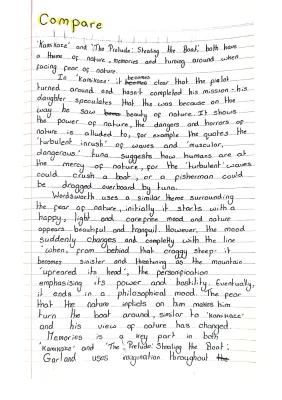 Compare
'Kamikaze' and 'The Prelude: Stealing the Boat' both have
a theme of nature, memories and turning around when
facing fear of nature.
In 'Kamikaze' it becomes clear that the pilot
turned around and hasn't completed his mission - his
daughter speculates that this was because on the
way he saw beauty of nature. It shows
the power of nature, the dangers and horrors of
nature is alluded to, for example the quotes the
'turbulent inrush' of waves and 'muscular,
dangerous' tuna suggests how humans are at
the mercy of nature, for the 'turbulent' waves
could crush a boat, or a fisherman could
be dragged overboard by tuna.
Wordsworth uses a similar theme surrounding
the fear of nature, initially it starts with a
happy, light and carefree mood and nature
appears beautiful and tranquil. However, the mood
suddenly changes and completly with the line
'when, from behind that craggy steep' it
becomes sinister and threatning as the mountain
'upreared its head', the personification
emphasising its power and hostility. Eventually,
it ends in a philosophical mood. The fear
that the nature inplicts on him makes him
turn the boat around, similar to 'Kamikaze'
and his view of nature has changed.
Memories is a key part in both
'Kamikaze' and 'The Prelude: Stealing the Boat'.
Garland uses imagination throughout the